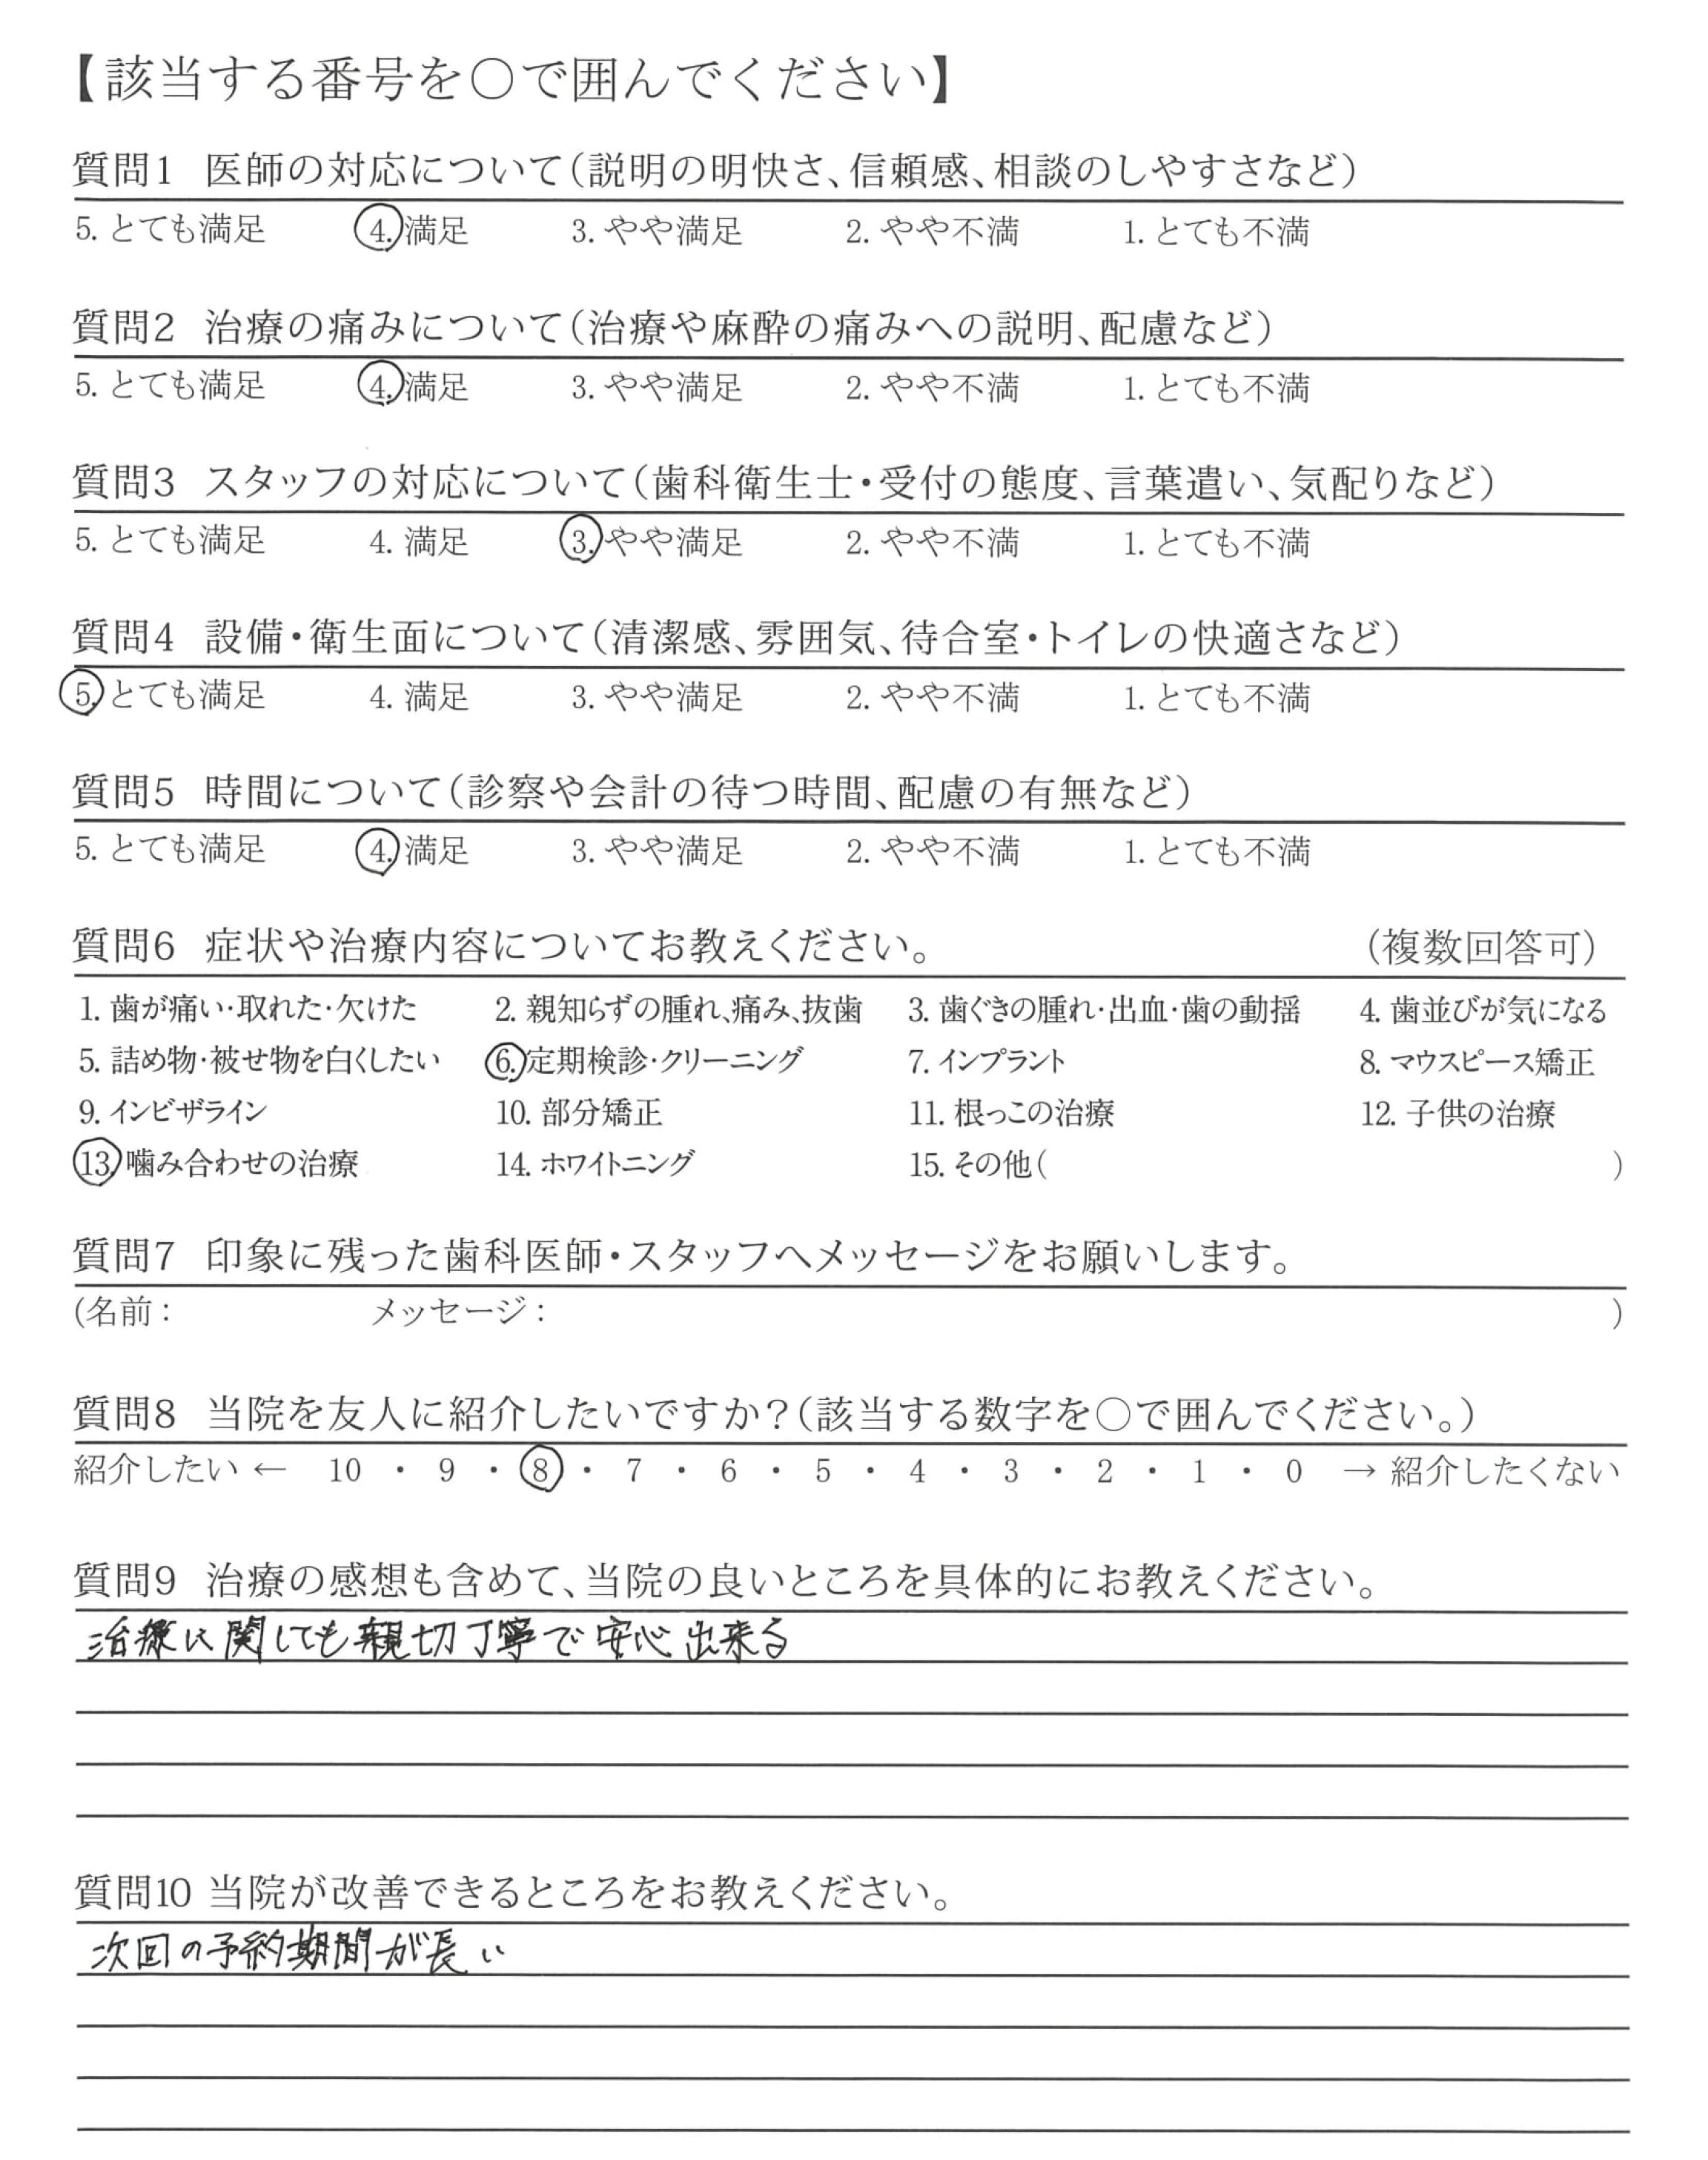 【該当する番号を○で囲んでください】
質問1 医師の対応について(説明の明快さ、信頼感、相談のしやすさなど)
5. とても満足 4. 満足 3. やや満足 2. やや不満 1. とても不満
質問2 治療の痛みについて(治療や麻酔の痛みへの説明、配慮など)
5. とても満足 4. 満足 3. やや満足 2. やや不満 1. とても不満
質問3 スタッフの対応について(歯科衛生士・受付の態度、言葉遣い、気配りなど)
5. とても満足 4. 満足 3. やや満足 2. やや不満 1. とても不満
質問4 設備・衛生面について(清潔感、雰囲気、待合室・トイレの快適さなど)
5. とても満足 4. 満足 3. やや満足 2. やや不満 1. とても不満
質問5 時間について(診察や会計の待つ時間、配慮の有無など)
5. とても満足 4. 満足 3. やや満足 2. やや不満 1. とても不満
質問6 症状や治療内容についてお教えください。 (複数回答可)
1. 歯が痛い・取れた・欠けた 2. 親知らずの腫れ、痛み、抜歯 3. 歯ぐきの腫れ・出血・歯の動揺 4. 歯並びが気になる
5. 詰め物・被せ物を白くしたい 6. 定期検診・クリーニング 7. インプラント 8. マウスピース矯正
9. インビザライン 10. 部分矯正 11. 根っこの治療 12. 子供の治療
13. 噛み合わせの治療 14. ホワイトニング 15. その他( )
質問7 印象に残った歯科医師・スタッフへメッセージをお願いします。
(名前： メッセージ： )
質問8 当院を友人に紹介したいですか?(該当する数字を○で囲んでください。)
紹介したい ← 10 ・ 9 ・ 8 ・ 7 ・ 6 ・ 5 ・ 4 ・ 3 ・ 2 ・ 1 ・ 0 → 紹介したくない
質問9 治療の感想も含めて、当院の良いところを具体的にお教えください。
治療に関しても親切丁寧で安心出来る
質問10 当院が改善できるところをお教えください。
次回の予約期間が長い